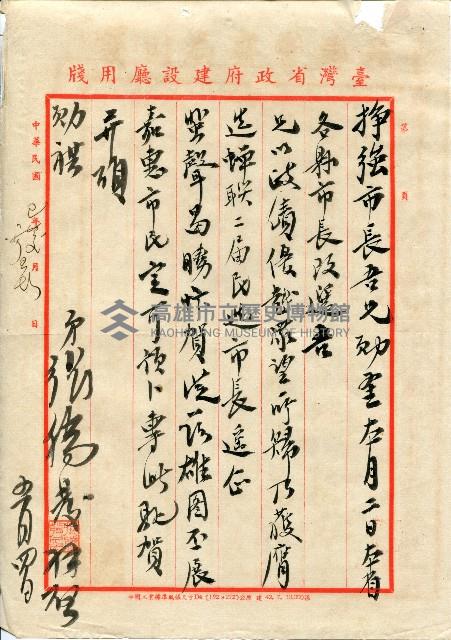 臺灣省政府建設廳用牋
第 頁
掙強市長吾兄勛鑒本月二日本省
各縣市長改選吾
兄以政績優越眾望所歸乃獲膺
選蟬聯二屆民選市長遙企
鶯聲曷勝忭賀從此雄圖丕展
嘉惠市民定可預卜專此馳賀
并頌
勛祺
弟
五月四日
中華民國 年 月 日
高雄市立歷史博物館
KAOHSIUNG MUSEUM OF HISTORY